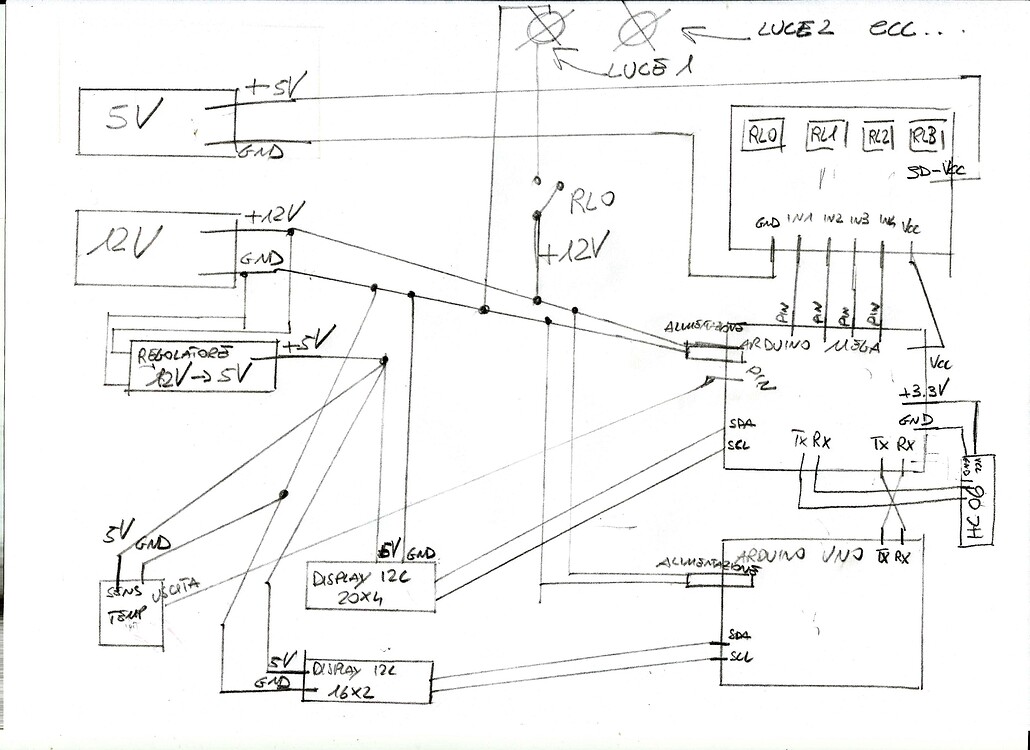 LUCE 2 ecc...
LUCE 1
5V
+5V
GND
RL0
RL1
RL2
RL3
JD-VCC
GND IN1 IN2 IN3 IN4 Vcc
12V
+12V
GND
RL0
+12V
PIN PIN PIN PIN
REGOLATORE
12V→5V
+5V
ALIMENTAZIONE
ARDUINO MEGA
PIN
Vcc
+3.3V
GND
SDA
SCL
Tx Rx
Tx Rx
VCC
GND
HC 06
5V GND
SENS
TEMP
USCITA
5V GND
DISPLAY I2C
20X4
ALIMENTAZIONE
ARDUINO UNO
Tx Rx
SDA
SCL
5V
GND
DISPLAY I2C
16X2